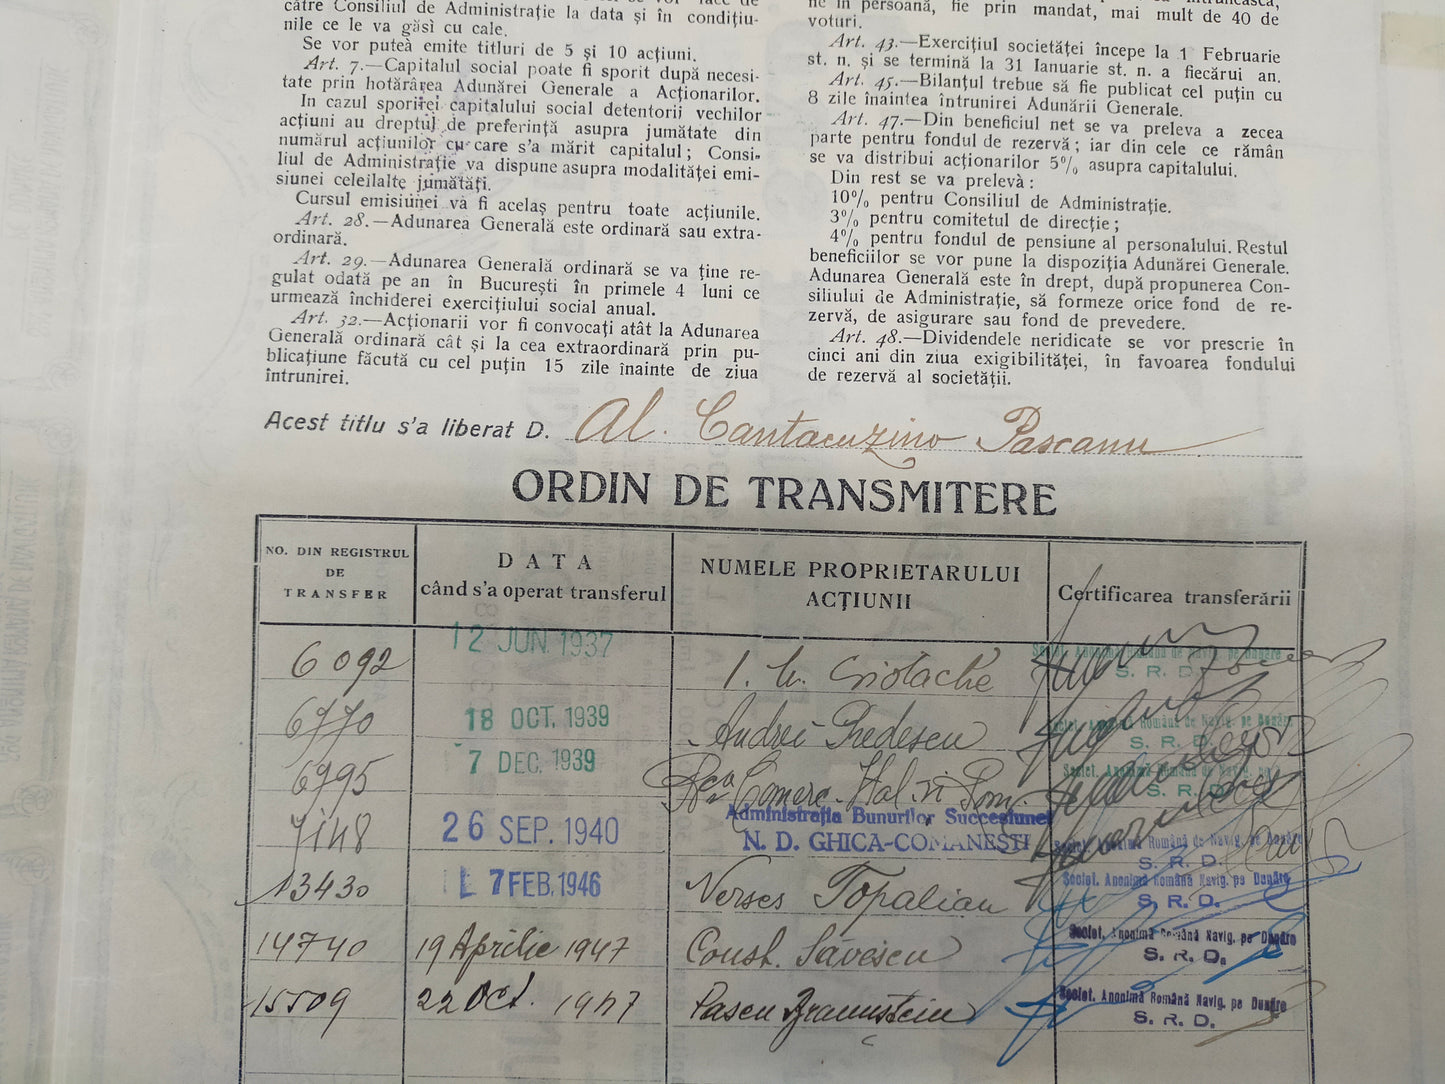 către Consiliul de Administrație la data și în condițiu-
nile ce le va găsì cu cale.
Se vor puteà emite titluri de 5 și 10 acțiuni.
Art. 7.—Capitalul social poate fi sporit după necesi-
tate prin hotărârea Adunărei Generale a Acționarilor.
In cazul sporirei capitalului social detentorii vechilor
acțiuni au dreptul de preferință asupra jumătate din
numărul acțiunilor cu care s'a mărit capitalul; Consi-
liul de Administrație va dispune asupra modalităței emi-
siunei celeilalte jumătăți.
Cursul emisiunei va fi acelaș pentru toate acțiunile.
Art. 28.—Adunarea Generală este ordinară sau extra-
ordinară.
Art. 29.—Adunarea Generală ordinară se va ține re-
gulat odată pe an în București în primele 4 luni ce
urmează închiderei exercițiului social anual.
Art. 32.—Acționarii vor fi convocați atât la Adunarea
Generală ordinară cât și la cea extraordinară prin pu-
blicațiune făcută cu cel puțin 15 zile înainte de ziua
întrunirei.
ne în persoană, fie prin mandat, mai mult de 40 de
voturi.
Art. 43.—Exercițiul societăței începe la 1 Februarie
st. n. și se termină la 31 Ianuarie st. n. a fiecărui an.
Art. 45.—Bilanțul trebue să fie publicat cel puțin cu
8 zile înaintea întrunirei Adunării Generale.
Art. 47.—Din beneficiul net se va preleva a zecea
parte pentru fondul de rezervă; iar din cele ce rămân
se va distribui acționarilor 5% asupra capitalului.
Din rest se va prelevà:
10% pentru Consiliul de Administrație.
3% pentru comitetul de direcție;
4% pentru fondul de pensiune al personalului. Restul
beneficiilor se vor pune la dispoziția Adunărei Generale.
Adunarea Generală este în drept, după propunerea Con-
siliului de Administrație, să formeze orice fond de re-
zervă, de asigurare sau fond de prevedere.
Art. 48.—Dividendele neridicate se vor prescrie în
cinci ani din ziua exigibilităței, în favoarea fondului
de rezervă al societății.
Acest titlu s'a liberat D. Al. Cantacuzino Pascanu
ORDIN DE TRANSMITERE
NO. DIN REGISTRUL
DE
TRANSFER
DATA
când s'a operat transferul
NUMELE PROPRIETARULUI
ACȚIUNII
Certificarea transferării
6092 12 JUN. 1937 Societ. Anonimă Română de Navig. pe Dunăre
S. R. D.
6770 18 OCT. 1939 Andrei Predescu Societ. Anonimă Română de Navig. pe Dunăre
S. R. D.
6795 7 DEC. 1939 Bca Comerc. Ital. și Rom. Societ. Anonimă Română de Navig. pe
S. R. D.
7148 26 SEP. 1940 Administrația Bunurilor Succesiunei
N. D. GHICA-COMANEȘTI Societ. Anonimă Română de Navig. pe Dunăre
S. R. D.
13430 7 FEB. 1946 Nerses Topalian Societ. Anonimă Română Navig. pe Dunăre
S. R. D.
14740 19 Aprilie 1947 Const. Săvescu Societ. Anonimă Română Navig. pe Dunăre
S. R. D.
15509 22 Oct. 1947 Pascu Braunștein Societ. Anonimă Română Navig. pe Dunăre
S. R. D.